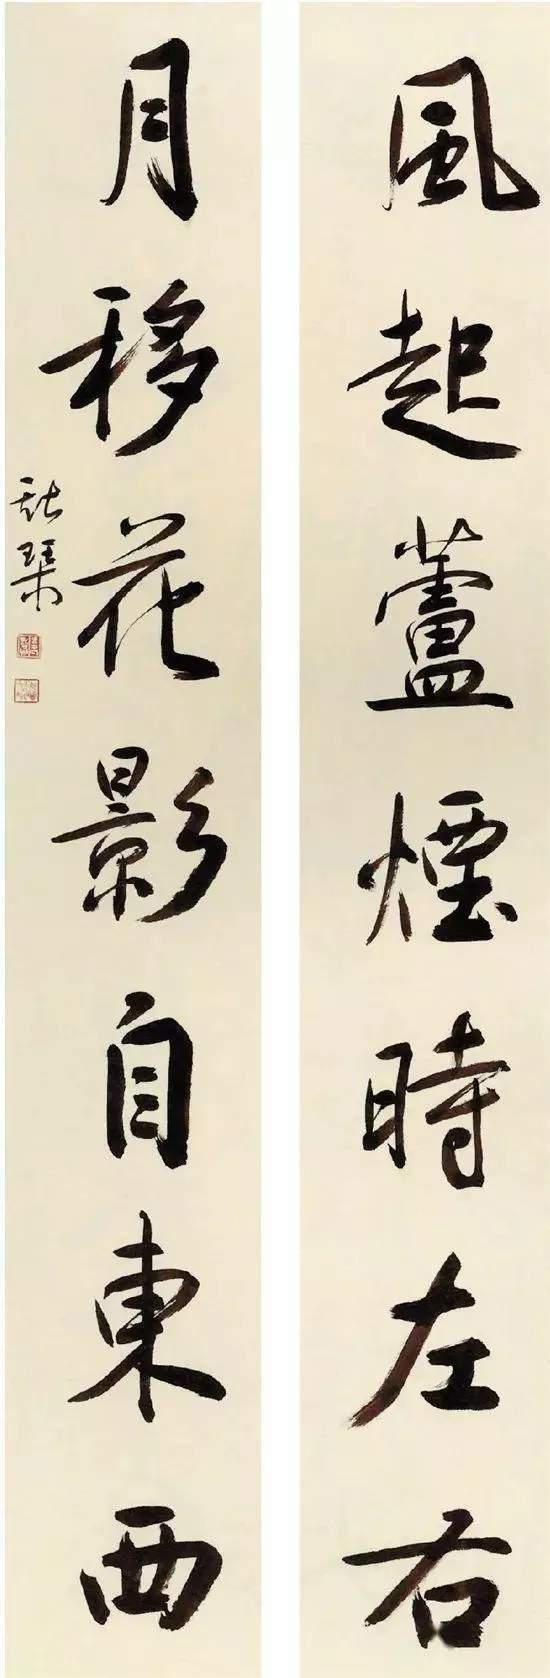 風起蘆煙時左右
月移花影自東西
琹